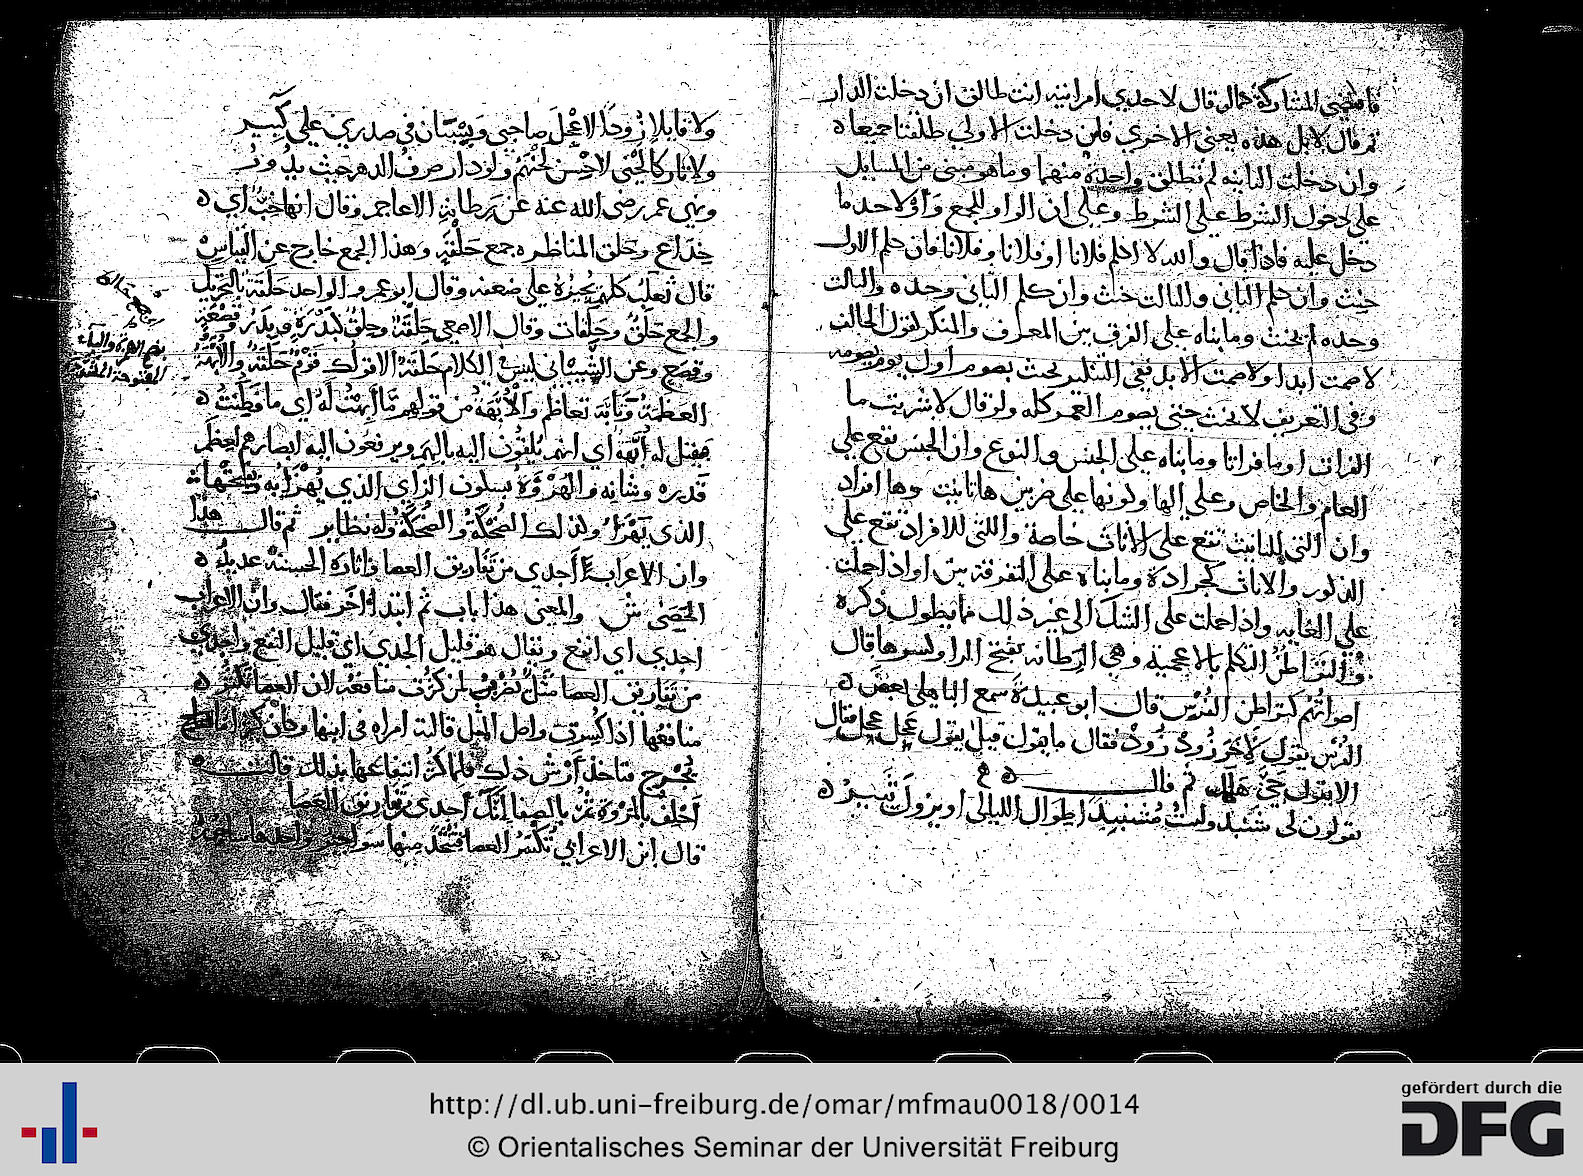 فاقتضى المشاركة حالو قال لاحدى امراتيه انت طالق ان دخلت الدار
ثم قال لا بل هذه يعنى الاخرى فان دخلت الاولى طلقتا جميعا
وان دخلت الثانية لم تطلق واحدة منهما وما هو مبنى من المسايل
على دخول الشرط على الشرط وعلى ان الواو للجمع وأو لاحد ما
دخل عليه فاذا قال والله لا اكلم فلانا او فلانا وفلانا فان كلم الاول
حنث وان كلم الثانى والثالث حنث وان كلم الثانى وحده والثالث
وحده لم يحنث وما بناه على الفرق بين المعرف والمنكر لقول الحالف
لا صمت ابدا ولا صمت الابد ففى التنكير يحنث بصوم اول يوم يصومه
وفى التعريف لا يحنث حتى يصوم العمر كله ولو قال لا شربت ما
الفرات او ما فراتا وما بناه على الجنس والنوع وان الجنس يقع على
العام والخاص وعلى الها وكونها على ضربين ها تانيث وها افراد
وان التى للتانيث تقع على الاناث خاصة واللتى للافراد تقع على
الذكور والاناث كجرادة وما بناه على التفرقة بين او اذا حملت
على الغايه واذا حملت على الشك الى غير ذلك مما يطول ذكره
والتراطن التكلم بالاعجمية وهى الرطانة بفتح الرا وكسرها قال
اصواتهم كتراطن الفرس قال ابو عبيدة سمع الباهلى بعض
الفرس يقول لآخر زود زود فقال ما يقول قيل يقول عجل عجل فقال
الا يقول حى هلك ثم قال
يقولون لى شنبذ ولست مشنبذا طوال الليالى او يزول ثبير
ولا قايلا زودا لاعجل صاحبى وبستان فى صدرى على كبير
ولا تاركا لحنى لاحسن لحنهم ولو دار صرف الدهر حيث يدور
ونهى عمر رضى الله عنه عن رطانة الاعاجم وقال انها خب اى
خداع وحلق المناظره جمع حلقة وهذا الجمع خارج عن القياس
قال ثعلب كلهم يجيزه على ضعفه وقال ابو عمرو الواحد حلقة بالتحريك
والجمع حلق وحلقات وقال الاصمعى حلقة وحلق كبدرة وبدر وقصعة
وقصع وعن الشيبانى ليس فى الكلام حلقة الا قولك قوم حلقة والابهة
العظمة وتابه تعاظم والابهة من قولهم ما ابهت له اى ما فطنت
فقيل له ابهة اى انهم يلقون اليه بالهم ويرفعون اليه ابصارهم لعظم
قدره وشانه والهزؤة بسكون الزاى الذى يهزأ به وبفتحها
الذى يهزأ وكذلك الضحكة والضحكة وله نظاير ثم قال هذا
وان الاعراب أجدى من تفاريق العصا واثاره الحسنة عديد
الحصى ش والمعنى هذا باب ثم ابتدا آخر فقال وان الاعراب
اجدى اى انفع ويقال هو قليل الجدى اى قليل النفع واجدى
من تفاريق العصا مثل يضرب لمن كثرت منافعه لان العصا تكثر
منافعها اذا كسرت واصل المثل قالته امراه فى ابنها وكان
يجرح فتاخذ أرش ذلك فلما كثر انتفاعها بذلك قالت
أحلف بالمروة يوما والصفا انك أجدى من تفاريق العصا
قال ابن الاعرابى تكسر العصا فتتخذ منها سواجير
بفتح الهمزة والباء
المفتوحة المشددة
http://dl.ub.uni-freiburg.de/omar/mfmau0018/0014
© Orientalisches Seminar der Universität Freiburg
gefördert durch die
DFG